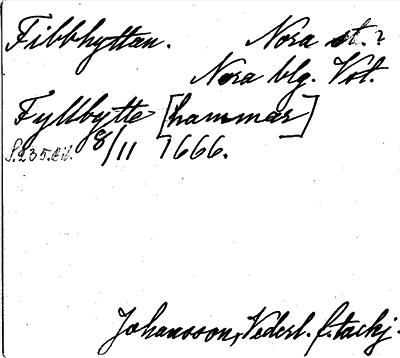 Fibbhyttan. Nora st.?
Nora blg. Vstl.
Fyllbytte [hammar]
S. 235. 8/11 1666.
Johansson, Vederl. f. tackj.